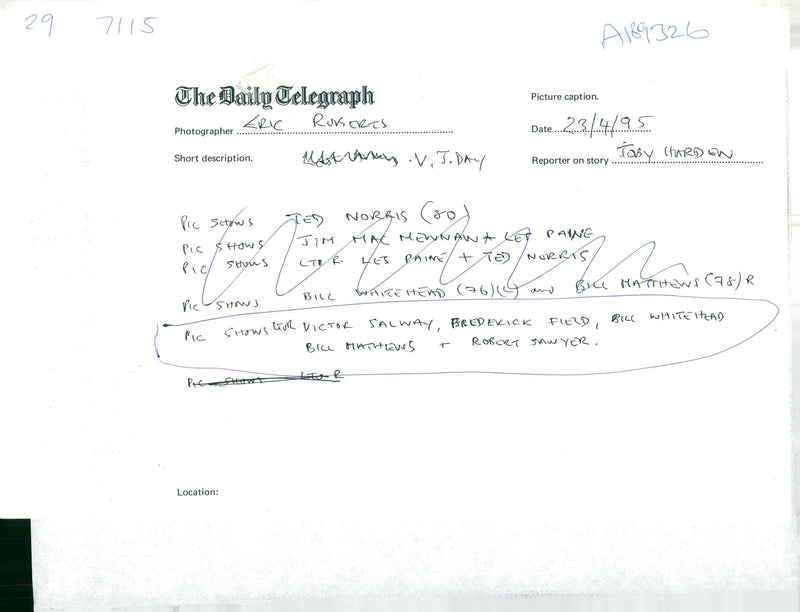 29 7115 A189326
The Daily Telegraph
Picture caption.
Photographer ERIC ROBERTS
Date 23/4/95
Short description. V.J.DAY
Reporter on story TOBY HARDEN
PIC SHOWS TED NORRIS (80)
PIC SHOWS JIM MAC MENNAN + LES PAINE
PIC SHOWS L TO R LES PAINE + TED NORRIS
PIC SHOWS BILL WHITEHEAD (76)(L) and BILL MATTHEWS (78) R
PIC SHOWS L TO R VICTOR SALWAY, FREDERICK FIELD, BILL WHITEHEAD
BILL MATHEWS + ROBERT SAWYER.
PIC SHOWS L TO R
Location: